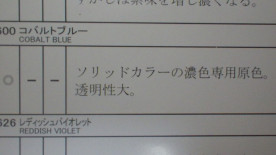 は紫味を増し濃くなる。
600 コバルトブルー
COBALT BLUE
◎ － － ソリッドカラーの濃色専用原色。
透明性大。
626 レディッシュバイオレット
REDDISH VIOLET